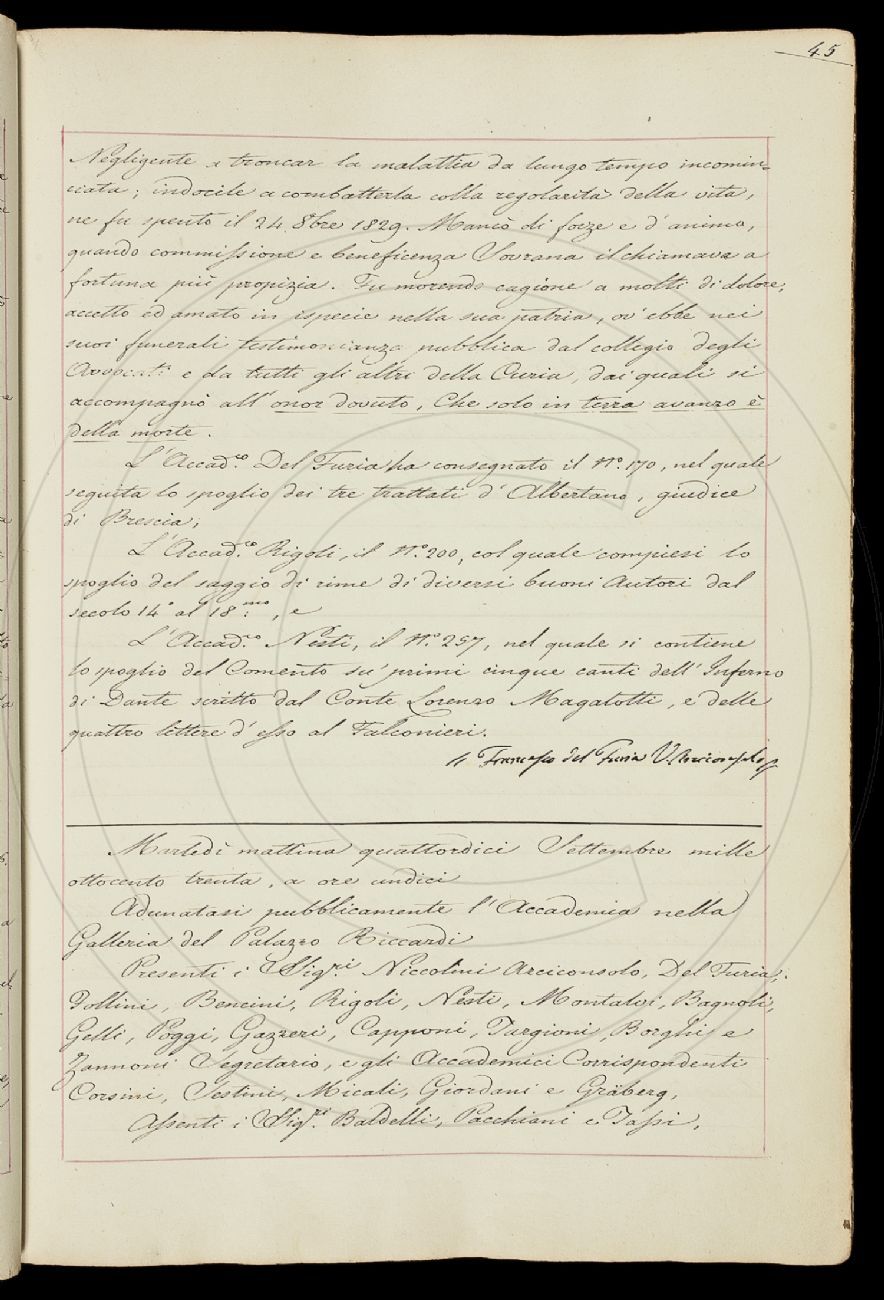 45
Negligente a troncar la malattia da lungo tempo incomin=
ciata; indocile a combatterla colla regolarità della vita,
ne fu spento il 24. 8bre 1829. Mancò di forze e d'animo,
quando commissione e beneficenza Sovrana il chiamava a
fortuna più propizia. Fu morendo cagione a molti di dolore;
accetto ed amato in ispecie nella sua patria, ov'ebbe nei
suoi funerali testimonianza pubblica dal collegio degli
Avvocati e da tutti gli altri della Curia, dai quali si
accompagnò all'onor dovuto, Che solo in terra avanzo è
della morte.
L'Accad.co Del Furia ha consegnato il N.o 170, nel quale
seguita lo spoglio dei tre trattati d'Albertano, giudice
di Brescia;
L'Accad.co Rigoli, il N.o 200, col quale compiesi lo
spoglio del saggio di rime di diversi buoni Autori dal
secolo 14.o al 18.mo, e
L'Accad.co Nesti, il N.o 257, nel quale si contiene
lo spoglio del Comento su' primi cinque canti dell'Inferno
di Dante scritto dal Conte Lorenzo Magalotti, e delle
quattro lettere d'esso al Falconieri.
Francesco del Furia V. Arciconsolo
Martedì mattina quattordici Settembre mille
ottocento trenta, a ore undici
Adunatasi pubblicamente l'Accademia nella
Galleria del Palazzo Riccardi
Presenti i SSig.ri Niccolini Arciconsolo, Del Furia,
Follini, Bencini, Rigoli, Nesti, Montalvi, Bagnoli,
Gelli, Poggi, Gazzeri, Capponi, Targioni, Borghi e
Zannoni Segretario, e gli Accademici Corrispondenti
Corsini, Sestini, Micali, Giordani e Gräberg,
Assenti i SSig.ri Baldelli, Pacchiani e Tassi.